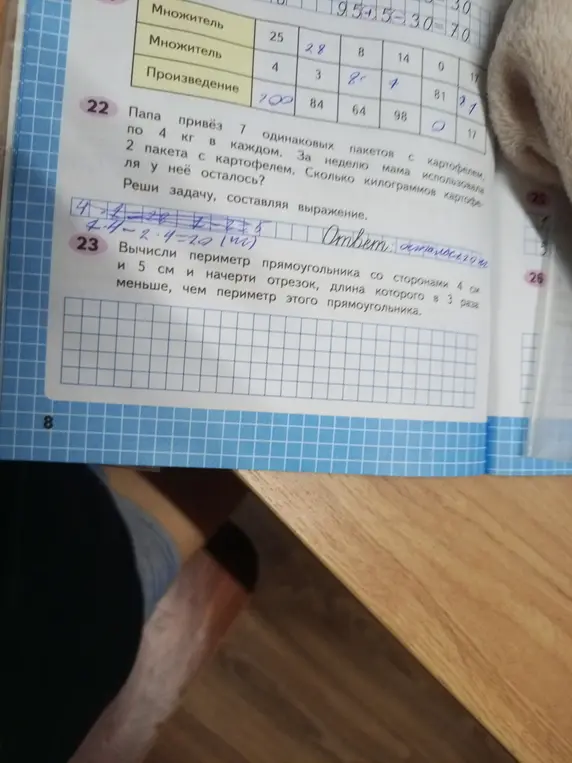 95+5-30=70
Множитель 25 28 8 14 0 17
Множитель 4 3 8 7 81
Произведение 100 84 64 98 0 17
22 Папа привёз 7 одинаковых пакетов с картофелем,
по 4 кг в каждом. За неделю мама использовала
2 пакета с картофелем. Сколько килограммов картофе-
ля у неё осталось?
Реши задачу, составляя выражение.
Ответ:
7·4-2·4=20 (кг)
23 Вычисли периметр прямоугольника со сторонами 4 см
и 5 см и начерти отрезок, длина которого в 3 раза
меньше, чем периметр этого прямоугольника.
8
25
26